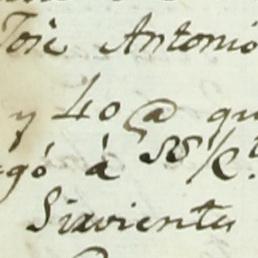 Jose Antonio
y 40 @ qu
gó à SS/C.t
Sirvientes